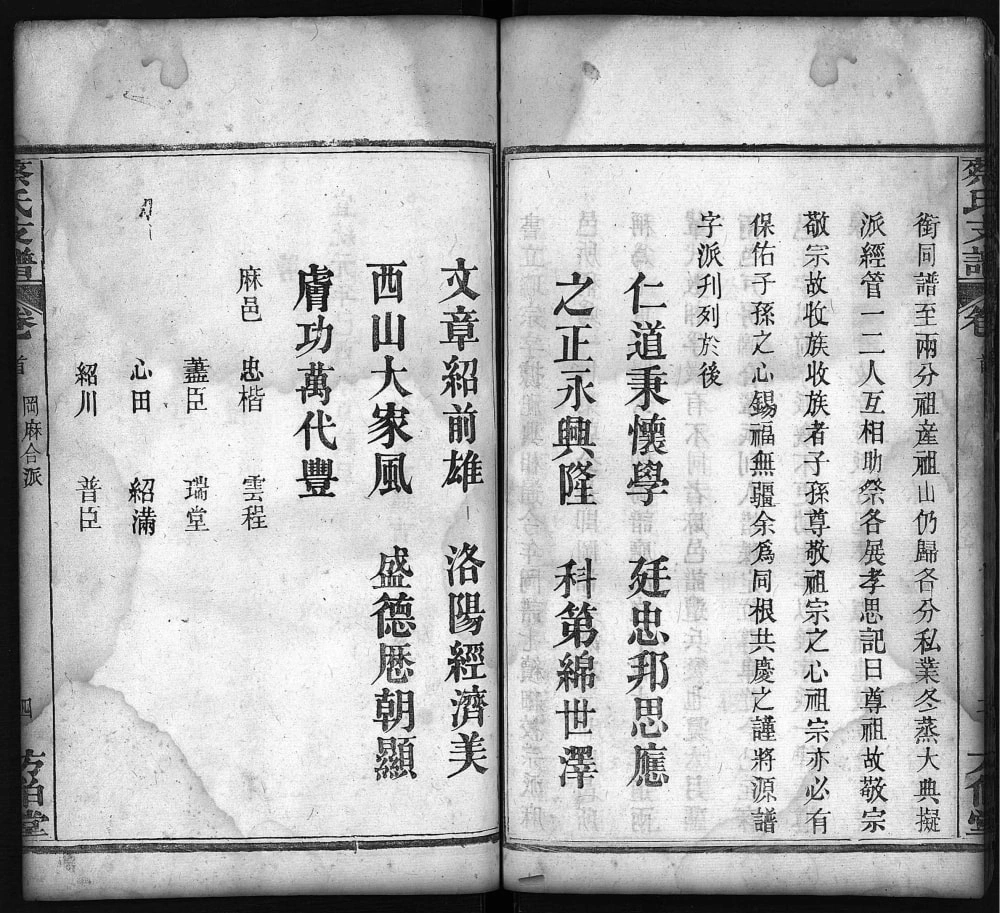 蔡氏支譜
卷
首
銜同譜至兩分祖産祖山仍歸各分私業冬蒸大典擬
派經管一二人互相助祭各展孝思記曰尊祖故敬宗
敬宗故收族收族者子孫尊敬祖宗之心祖宗亦必有
保佑子孫之心錫福無疆余爲同根共慶之謹將源譜
字派刋列於後
仁道秉懷學 廷忠邦思應
之正永興隆 科第綿世澤
文章紹前雄 洛陽經濟美
西山大家風 盛德厯朝顯
膚功萬代豐
麻邑 忠楷 雲程
藎臣 瑞堂
心田 紹滿
紹川 普臣
蔡氏支譜
卷
首
岡麻合派
四
堂